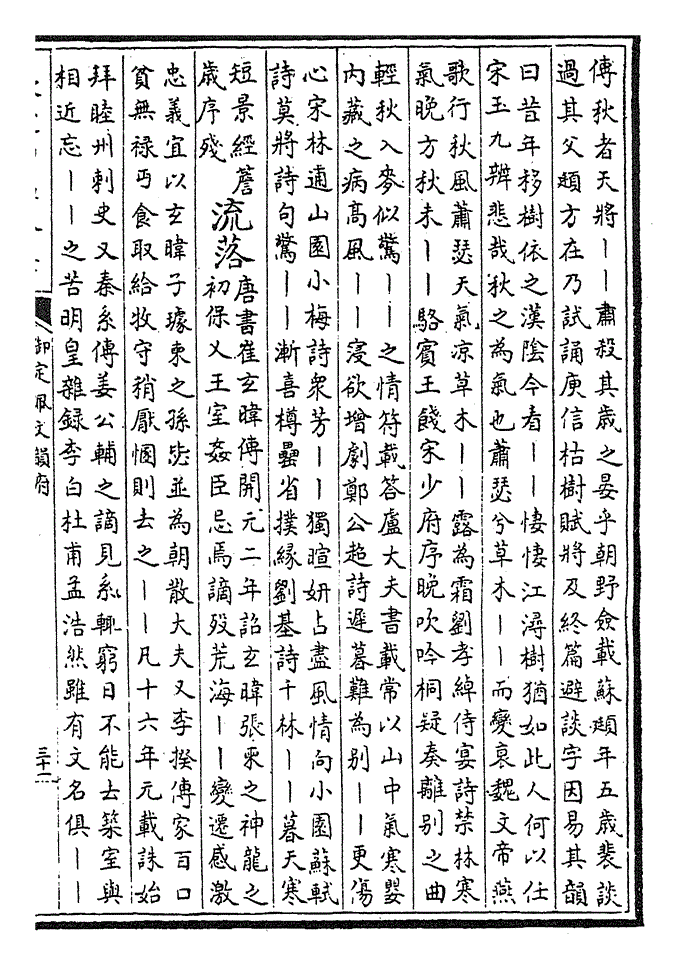 傳秋者天將丨丨肅殺其歳之晏乎朝野僉載蘇頲年五歳裴談
過其父頲方在乃試誦庾信枯樹賦將及終篇避談字因易其韻
曰昔年移樹依依漢隂今看丨丨悽悽江潯樹猶如此人何以任
宋玉九辨悲哉秋之為氣也蕭瑟兮草木丨丨而變衰魏文帝燕
歌行秋風蕭瑟天氣凉草木丨丨露為霜劉孝綽侍宴詩禁林寒
氣晚方秋未丨丨駱賓王餞宋少府序晚吹吟桐疑奏離别之曲
輕秋入麥似驚丨丨之情符載答盧大夫書載常以山中氣寒嬰
内藏之病高風丨丨寖欲增劇鄭公超詩遲暮難為别丨丨更傷
心宋林逋山園小梅詩衆芳丨丨獨暄妍占盡風情向小園蘇軾
詩莫將詩句驚丨丨漸喜樽罍省撲縁劉基詩千林丨丨暮天寒
短景經簷
歳序殘
流落
唐書崔玄暐傳開元二年詔玄暐張柬之神龍之
初保乂王室姦臣忌焉謫歿荒海丨丨變遷感激
忠義宜以玄暐子璩柬之孫毖並為朝散大夫又李揆傳家百口
貧無禄丐食取給牧守稍厭慁則去之丨丨凡十六年元載誅始
拜睦州刺史又秦系傳姜公輔之謫見系輒窮日不能去築室與
相近忘丨丨之苦明皇雜録李白杜甫孟浩然雖有文名俱丨丨
御定佩文韻府
三十二